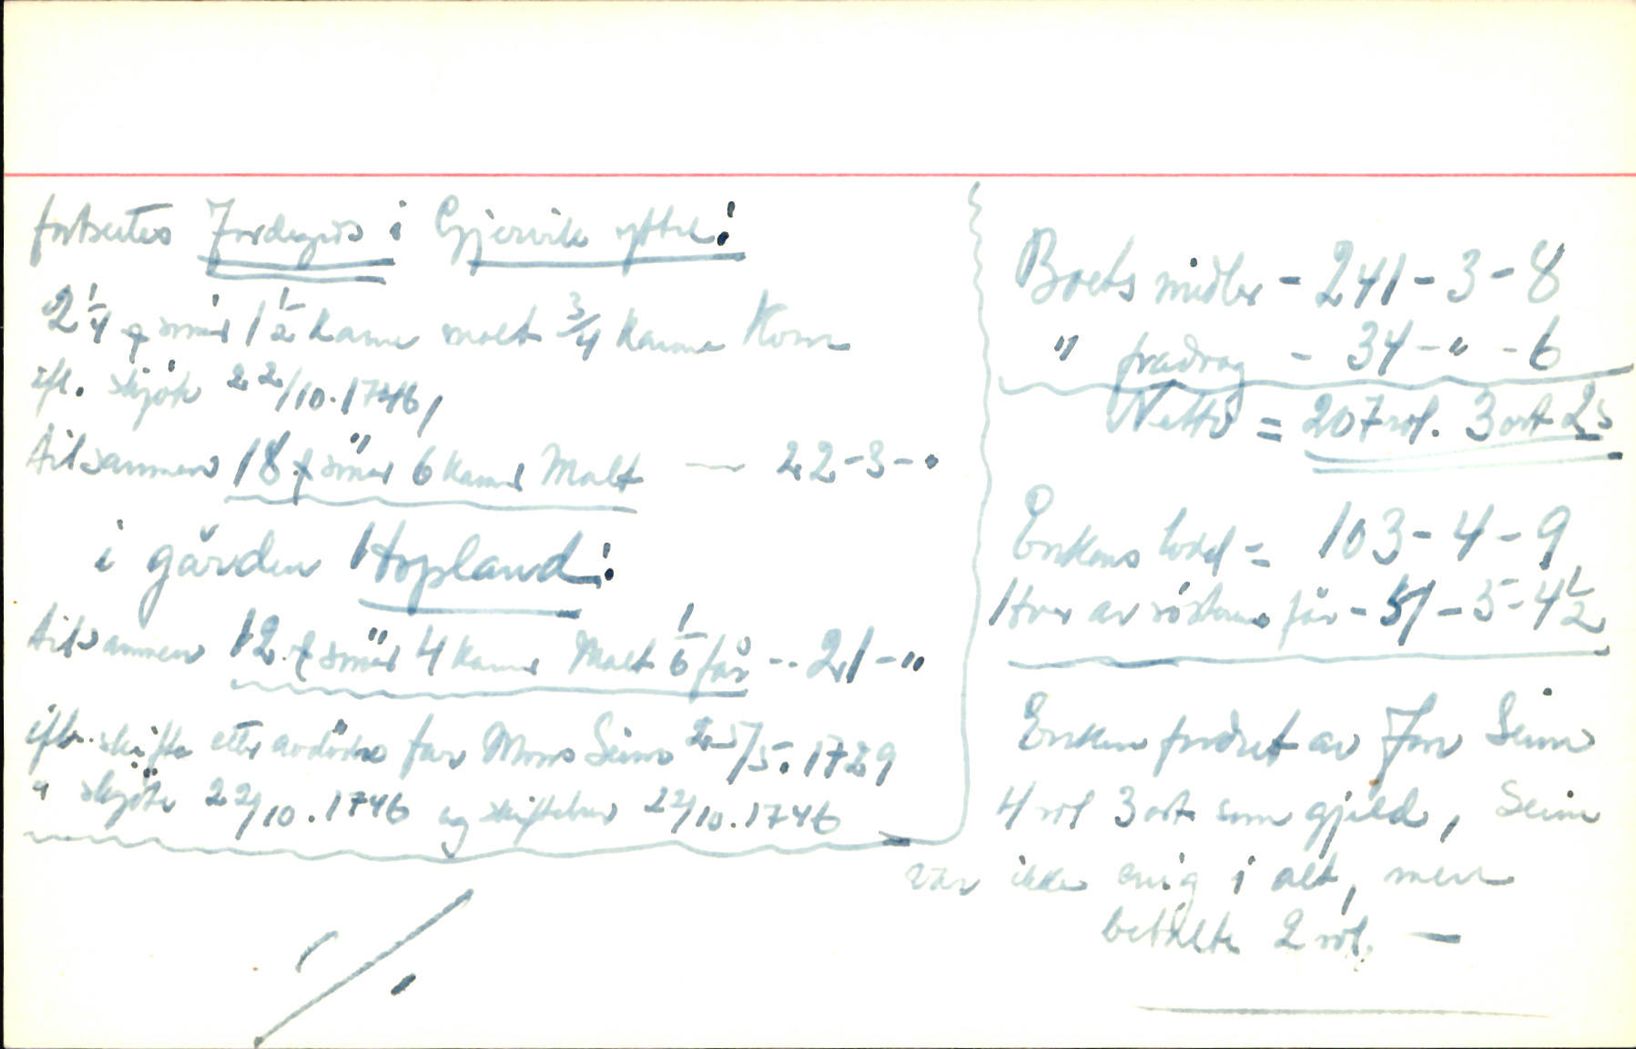 fortsettes Jordegods i Gjervik yttre:
2 1/4 smør 1 1/2 kanne malt 3/4 kanne Korn
ifl. skjøte 22/10. 1746,
tilsammen 18 smør 6 kanner Malt — 22-3-"
i gården Hopland:
tilsammen 12 smør 4 kanner Malt 1/6 får -- 21-"
iflr. skifte etter avdødes far Mons Seim 25/5. 1729
" skjøte 22/10. 1746 og skiftebrev 22/10. 1746
./.
Boets midler - 241-3-8
" fradrag - 34-"-6
Netto = 207 rdl. 3 ort 2 s
Enkens lodd = 103-4-9
Hver av søstrene får - 51-5-4 1/2
Enken fordret av Jon Seim
4 rdl 3 ort som gjeld, Seim
var ikke enig i alt, men
betalte 2 rdl. —